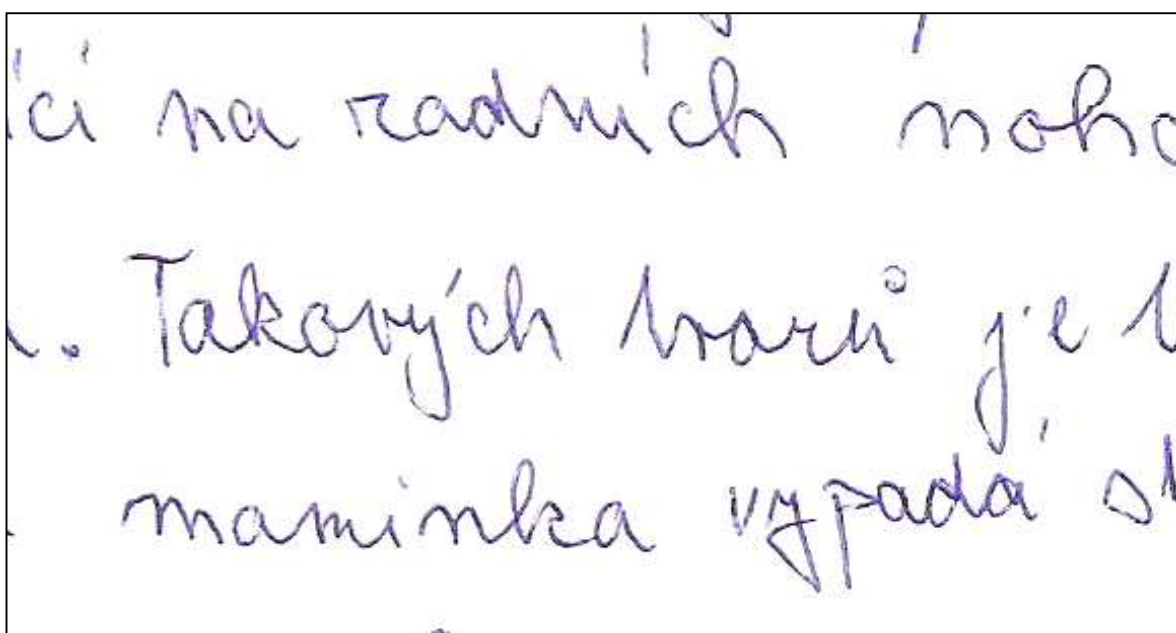 ící na zadních noho
. Takových tvarů je
maminka vypadá